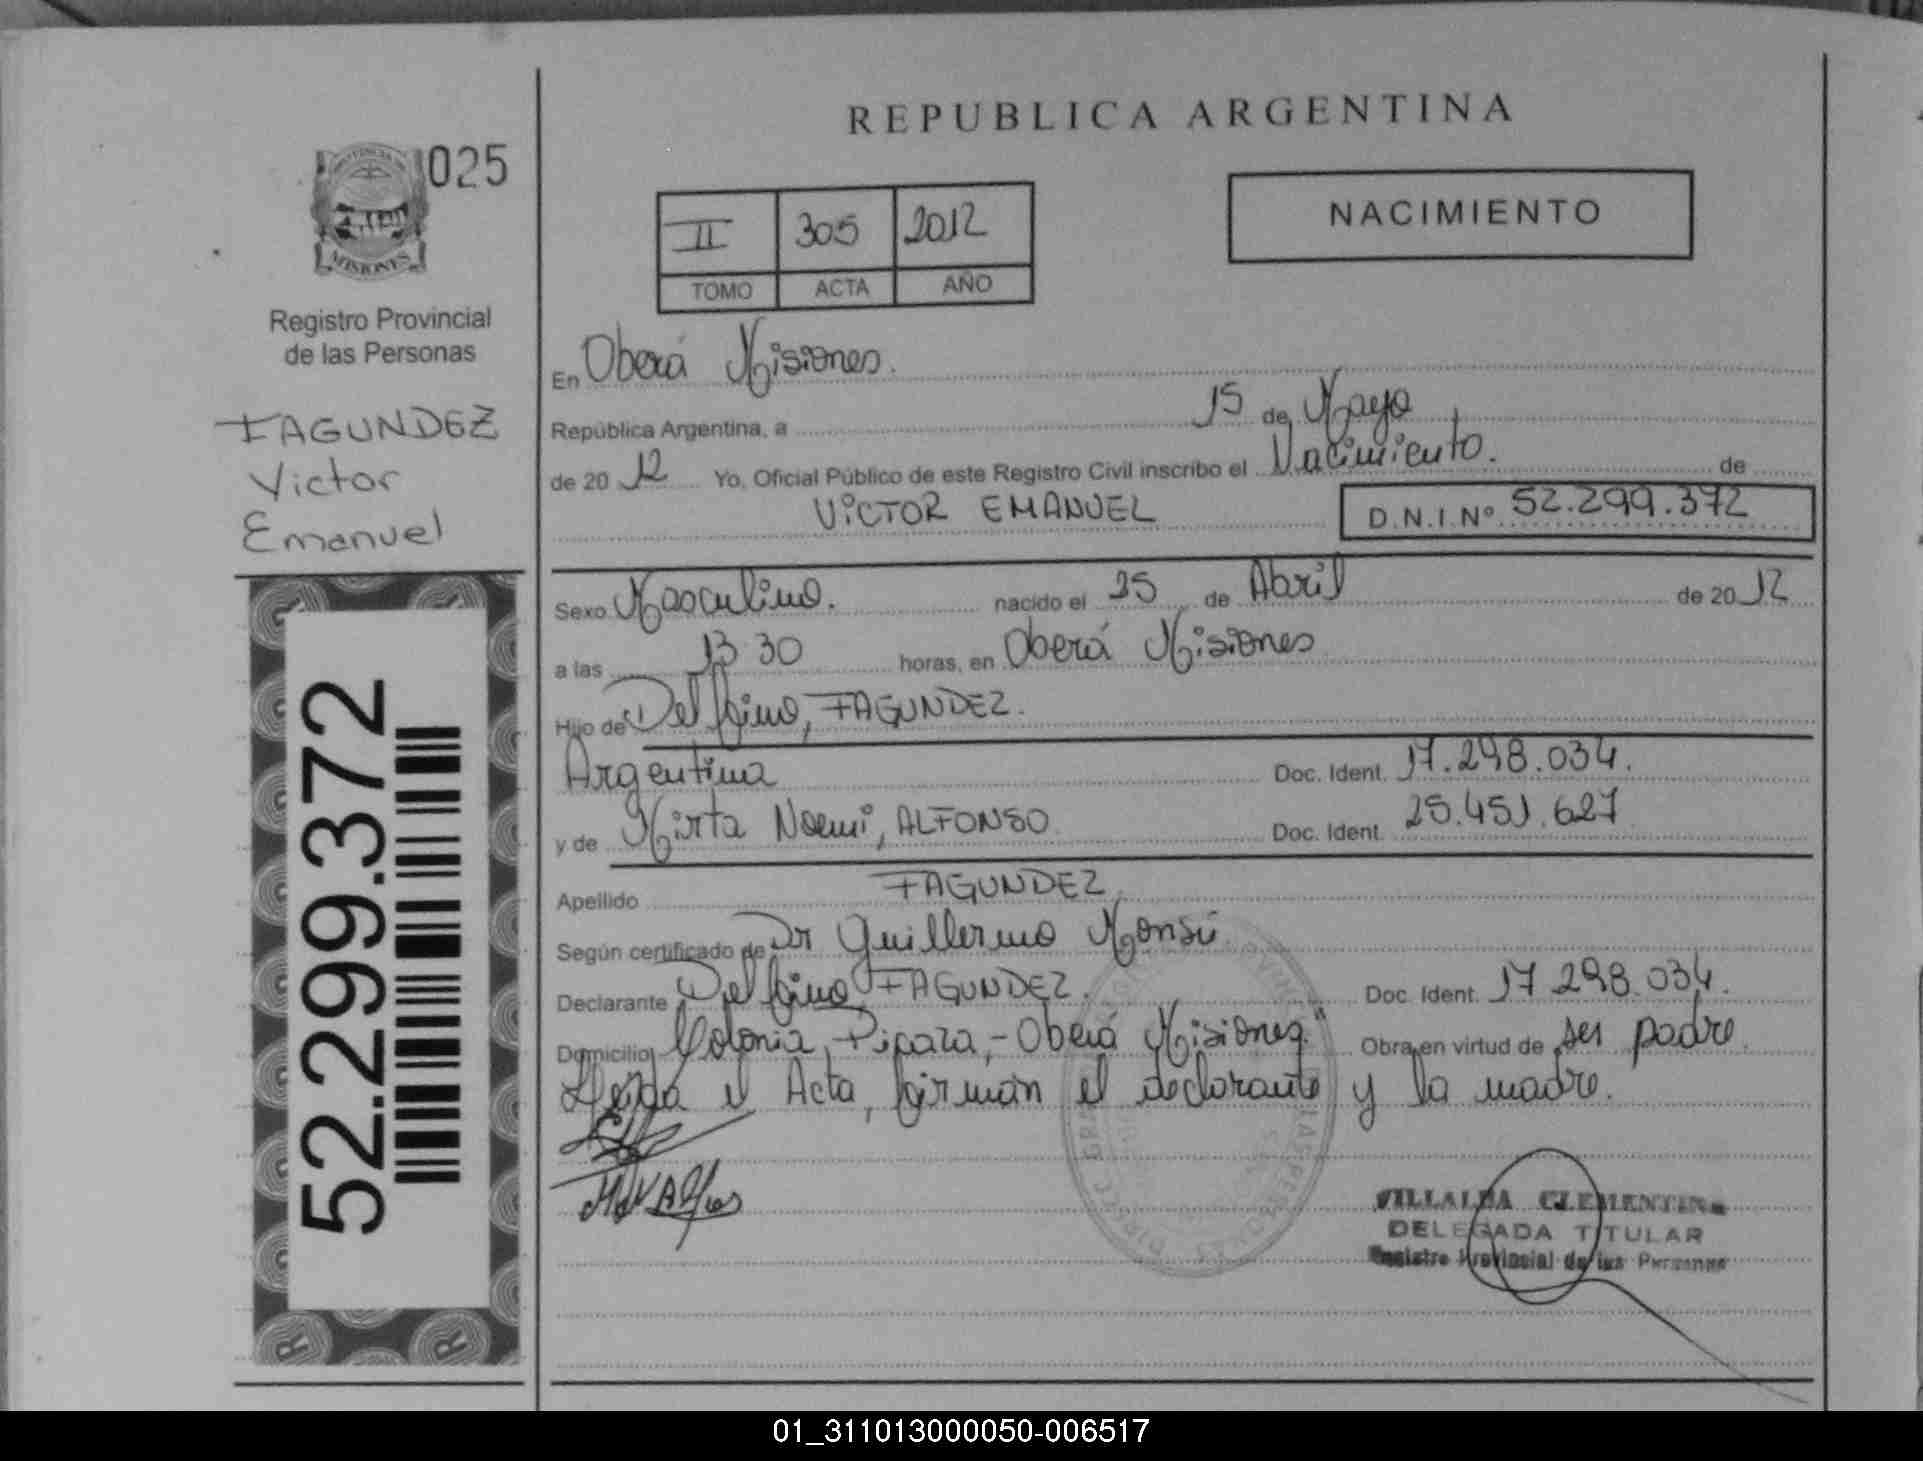 REPUBLICA ARGENTINA
025
MISIONES
Registro Provincial
de las Personas
FAGUNDEZ
Victor
Emanuel
52.299.372
II 305 2012
TOMO ACTA AÑO
NACIMIENTO
En Oberá Misiones.
República Argentina, a 15 de Mayo
de 20 12 Yo, Oficial Público de este Registro Civil inscribo el Nacimiento. de
VICTOR EMANUEL D.N.I.Nº 52.299.372
Sexo Masculino. nacido el 25 de Abril de 20 12
a las 13 30 horas, en Oberá Misiones
Hijo de Delfino, FAGUNDEZ.
Argentina Doc. Ident. 17.298.034.
y de Mirta Noemi, ALFONSO Doc. Ident. 25.451.627
Apellido FAGUNDEZ
Según certificado de Dr Guillermo Monsú
Declarante Delfino FAGUNDEZ. Doc. Ident. 17 298.034.
Domicilio Colonia, - Oberá Misiones" Obra en virtud de ser padre.
Leída el Acta, firman el declarante y la madre.
VILLALBA CLEMENTINA
DELEGADA TITULAR
Registro Provincial de las Personas
01_311013000050-006517